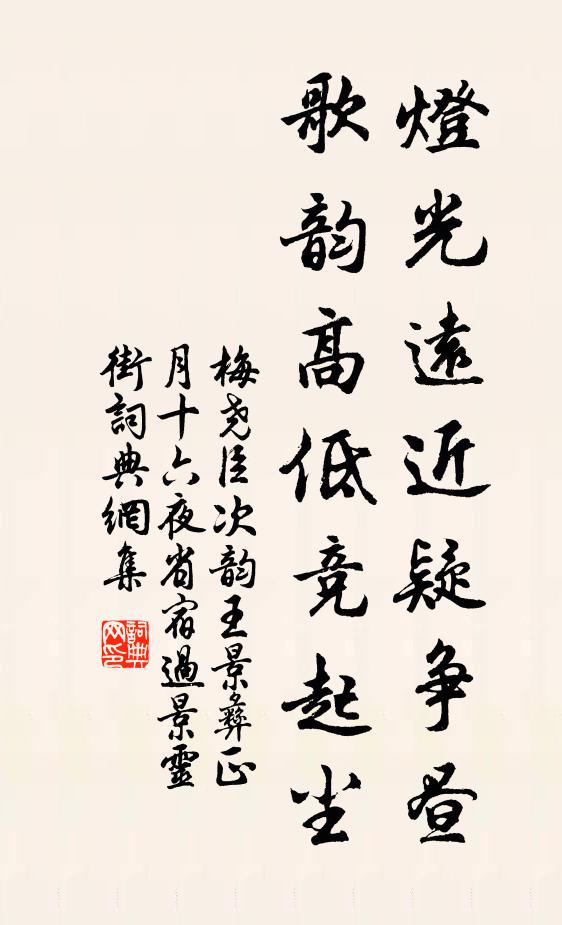 燈光遠近疑争昼
歌韵高低竞起尘
梅尧臣次韵王景彝正
月十六夜省宿過景靈
街詞典網集
詞典网印